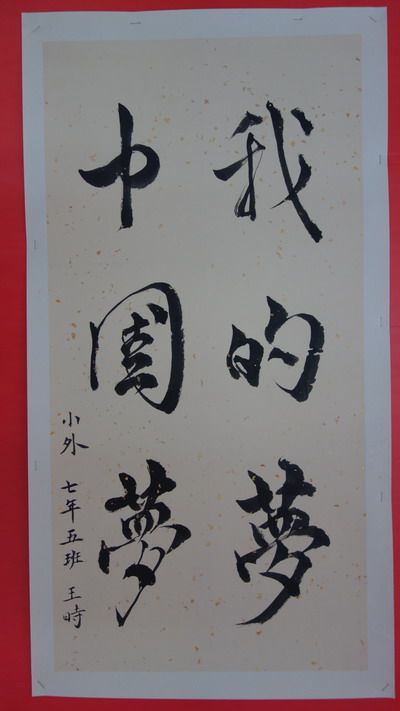 我的夢
中國夢
小外 七年五班 王時